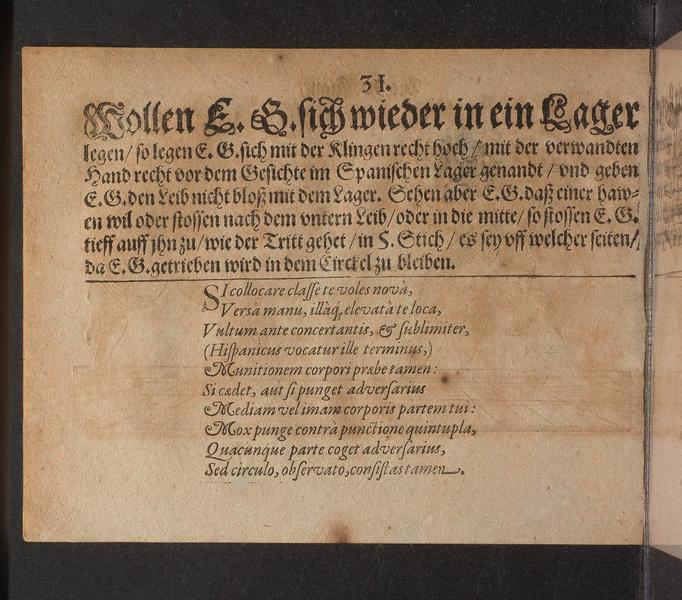 31.
Wollen E. G. sich wieder in ein Lager
legen / so legen E. G. sich mit der Klingen recht hoch / mit der verwandten
Hand recht vor dem Gesichte im Spanischen Lager genandt / vnd geben
E. G. den Leib nicht bloß mit dem Lager. Sehen aber E. G. daß einer haw-
en wil oder stossen nach dem vntern Leib / oder in die mitte / so stossen E. G.
tieff auff jhn zu / wie der Tritt gehet / in 5. Stich / es sey vff welcher seiten /
da E. G. getrieben wird in dem Circkel zu bleiben.
SI collocare classe te voles novâ,
Versâ manu, illâq́; elevatâ te loca,
Vultum ante concertantis, & sublimiter,
(Hispanicus vocatur ille terminus,)
Munitionem corpori præbe tamen:
Si cædet, aut si punget adversarius
Mediam vel imam corporis partem tui:
Mox punge contrà punctione quintuplâ,
Quacunque parte coget adversarius,
Sed circulo, observato, consistas tamen.